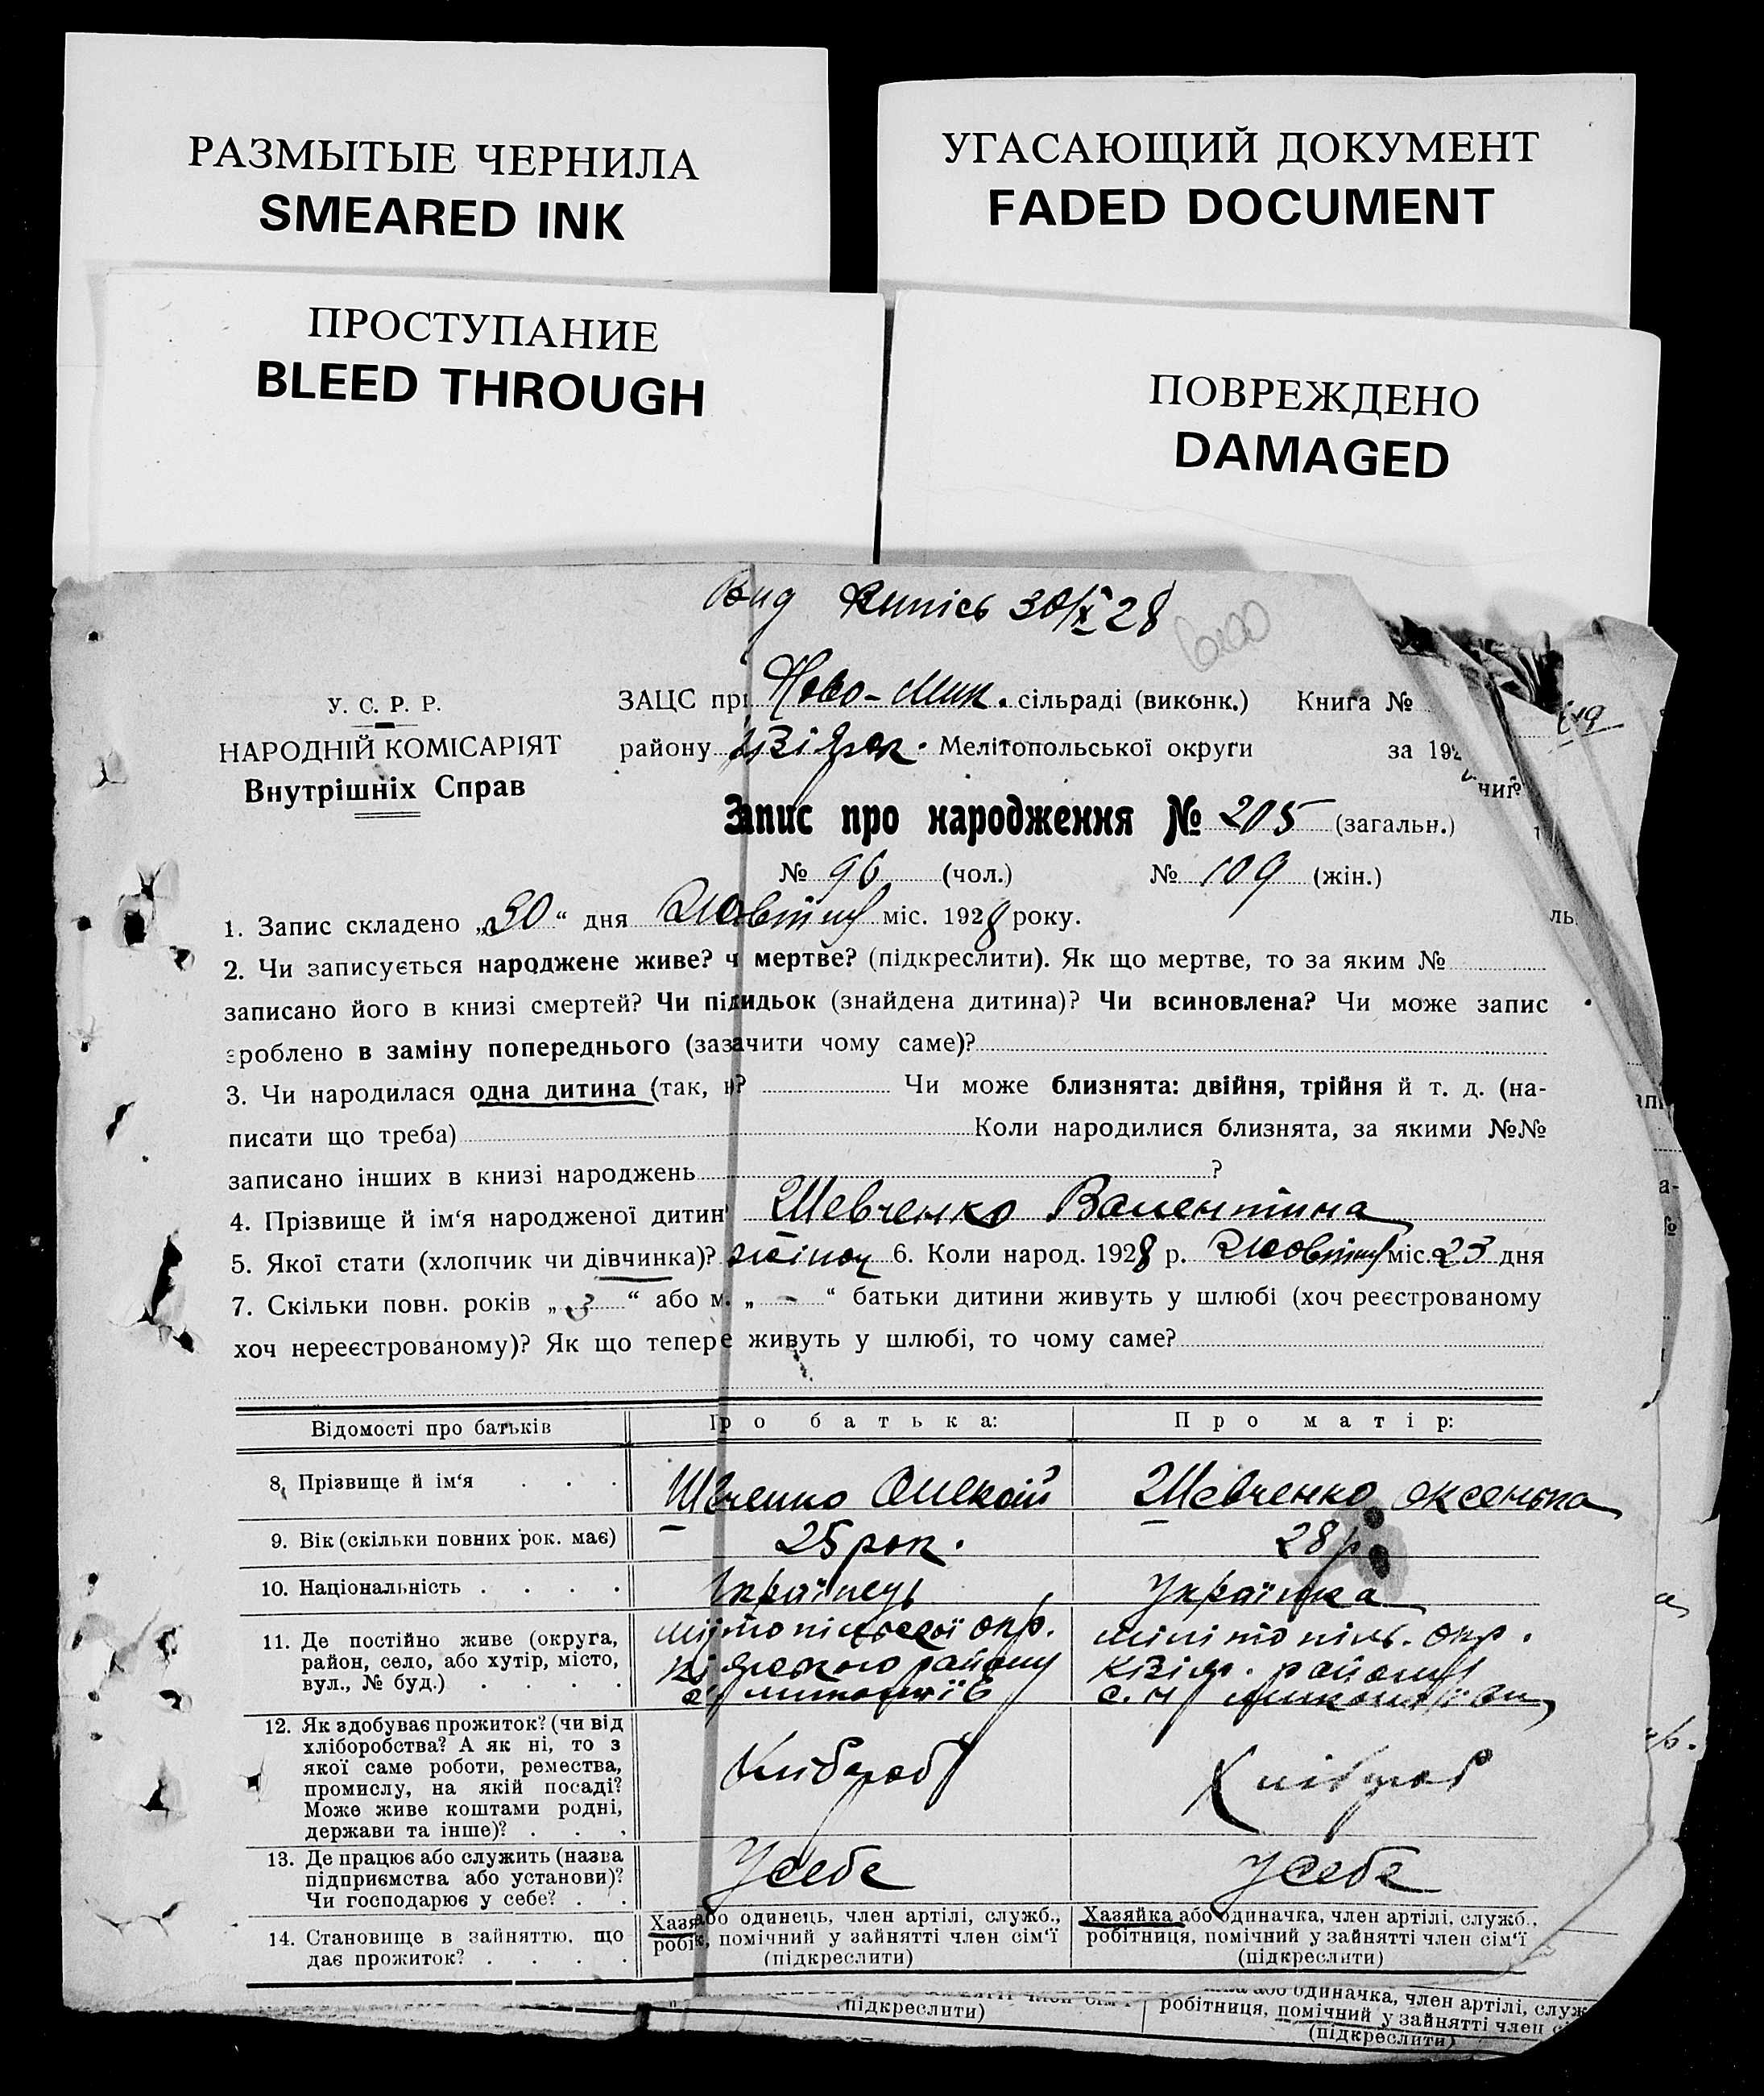 РАЗМЫТЫЕ ЧЕРНИЛА
SMEARED INK
УГАСАЮЩИЙ ДОКУМЕНТ
FADED DOCUMENT
ПРОСТУПАНИЕ
BLEED THROUGH
ПОВРЕЖДЕНО
DAMAGED
30/X 28
У. С. Р. Р.
НАРОДНІЙ КОМІСАРІЯТ
Внутрішніх Справ
ЗАЦС при Ново-Мик. сільраді (виконк.) Книга №
району Мелітопольської округи за 192
Запис про народження № 205 (загальн.)
№ 96 (чол.) № 109 (жін.)
1. Запис складено „30“ дня Жовтня міс. 1928 року.
2. Чи записується народжене живе? ч мертве? (підкреслити). Як що мертве, то за яким №
записано його в книзі смертей? Чи підкидьок (знайдена дитина)? Чи всиновлена? Чи може запис
зроблено в заміну попереднього (зазачити чому саме)?
3. Чи народилася одна дитина (так, н? Чи може близнята: двійня, трійня й т. д. (на-
писати що треба) Коли народилися близнята, за якими №№
записано інших в книзі народжень ?
4. Прізвище й ім‘я народженої дитин Шевченко Валентина
5. Якої стати (хлопчик чи дівчинка)? жіноч 6. Коли народ. 1928 р. Жовтня міс. 23 дня
7. Скільки повн. років „3“ або м. „-“ батьки дитини живуть у шлюбі (хоч реєстрованому
хоч нереєстрованому)? Як що тепере живуть у шлюбі, то чому саме?
Відомості про батьків
Про батька:
Про матір:
8. Прізвище й ім‘я
Шевченко Олексій
Шевченко Оксенька
9. Вік (скільки повних рок. має)
25 рок.
28 р.
10. Національність
Українець
Українка
11. Де постійно живе (округа,
район, село, або хутір, місто,
вул., № буд.)
опр.
району
мілітопіль. опр.
району
12. Як здобуває прожиток? (чи від
хліборобства? А як ні, то з
якої саме роботи, ремества,
промислу, на якій посаді?
Може живе коштами родні,
держави та інше)?
Хлібороб
Хлібороб
13. Де працює або служить (назва
підприємства або установи)?
Чи господарює у себе?
У себе
У себе
14. Становище в зайняттю, що
дає прожиток?
Хазя або одинець, член артілі, служб.,
робік, помічний у зайнятті член сім‘ї
(підкреслити)
Хазяйка або одиначка, член артілі, служб.,
робітниця, помічний у зайнятті член сім‘ї
(підкреслити)
(підкреслити)
одиначка, член артілі, служ
робітниця, помічний у зайнятті член
(підкреслити)